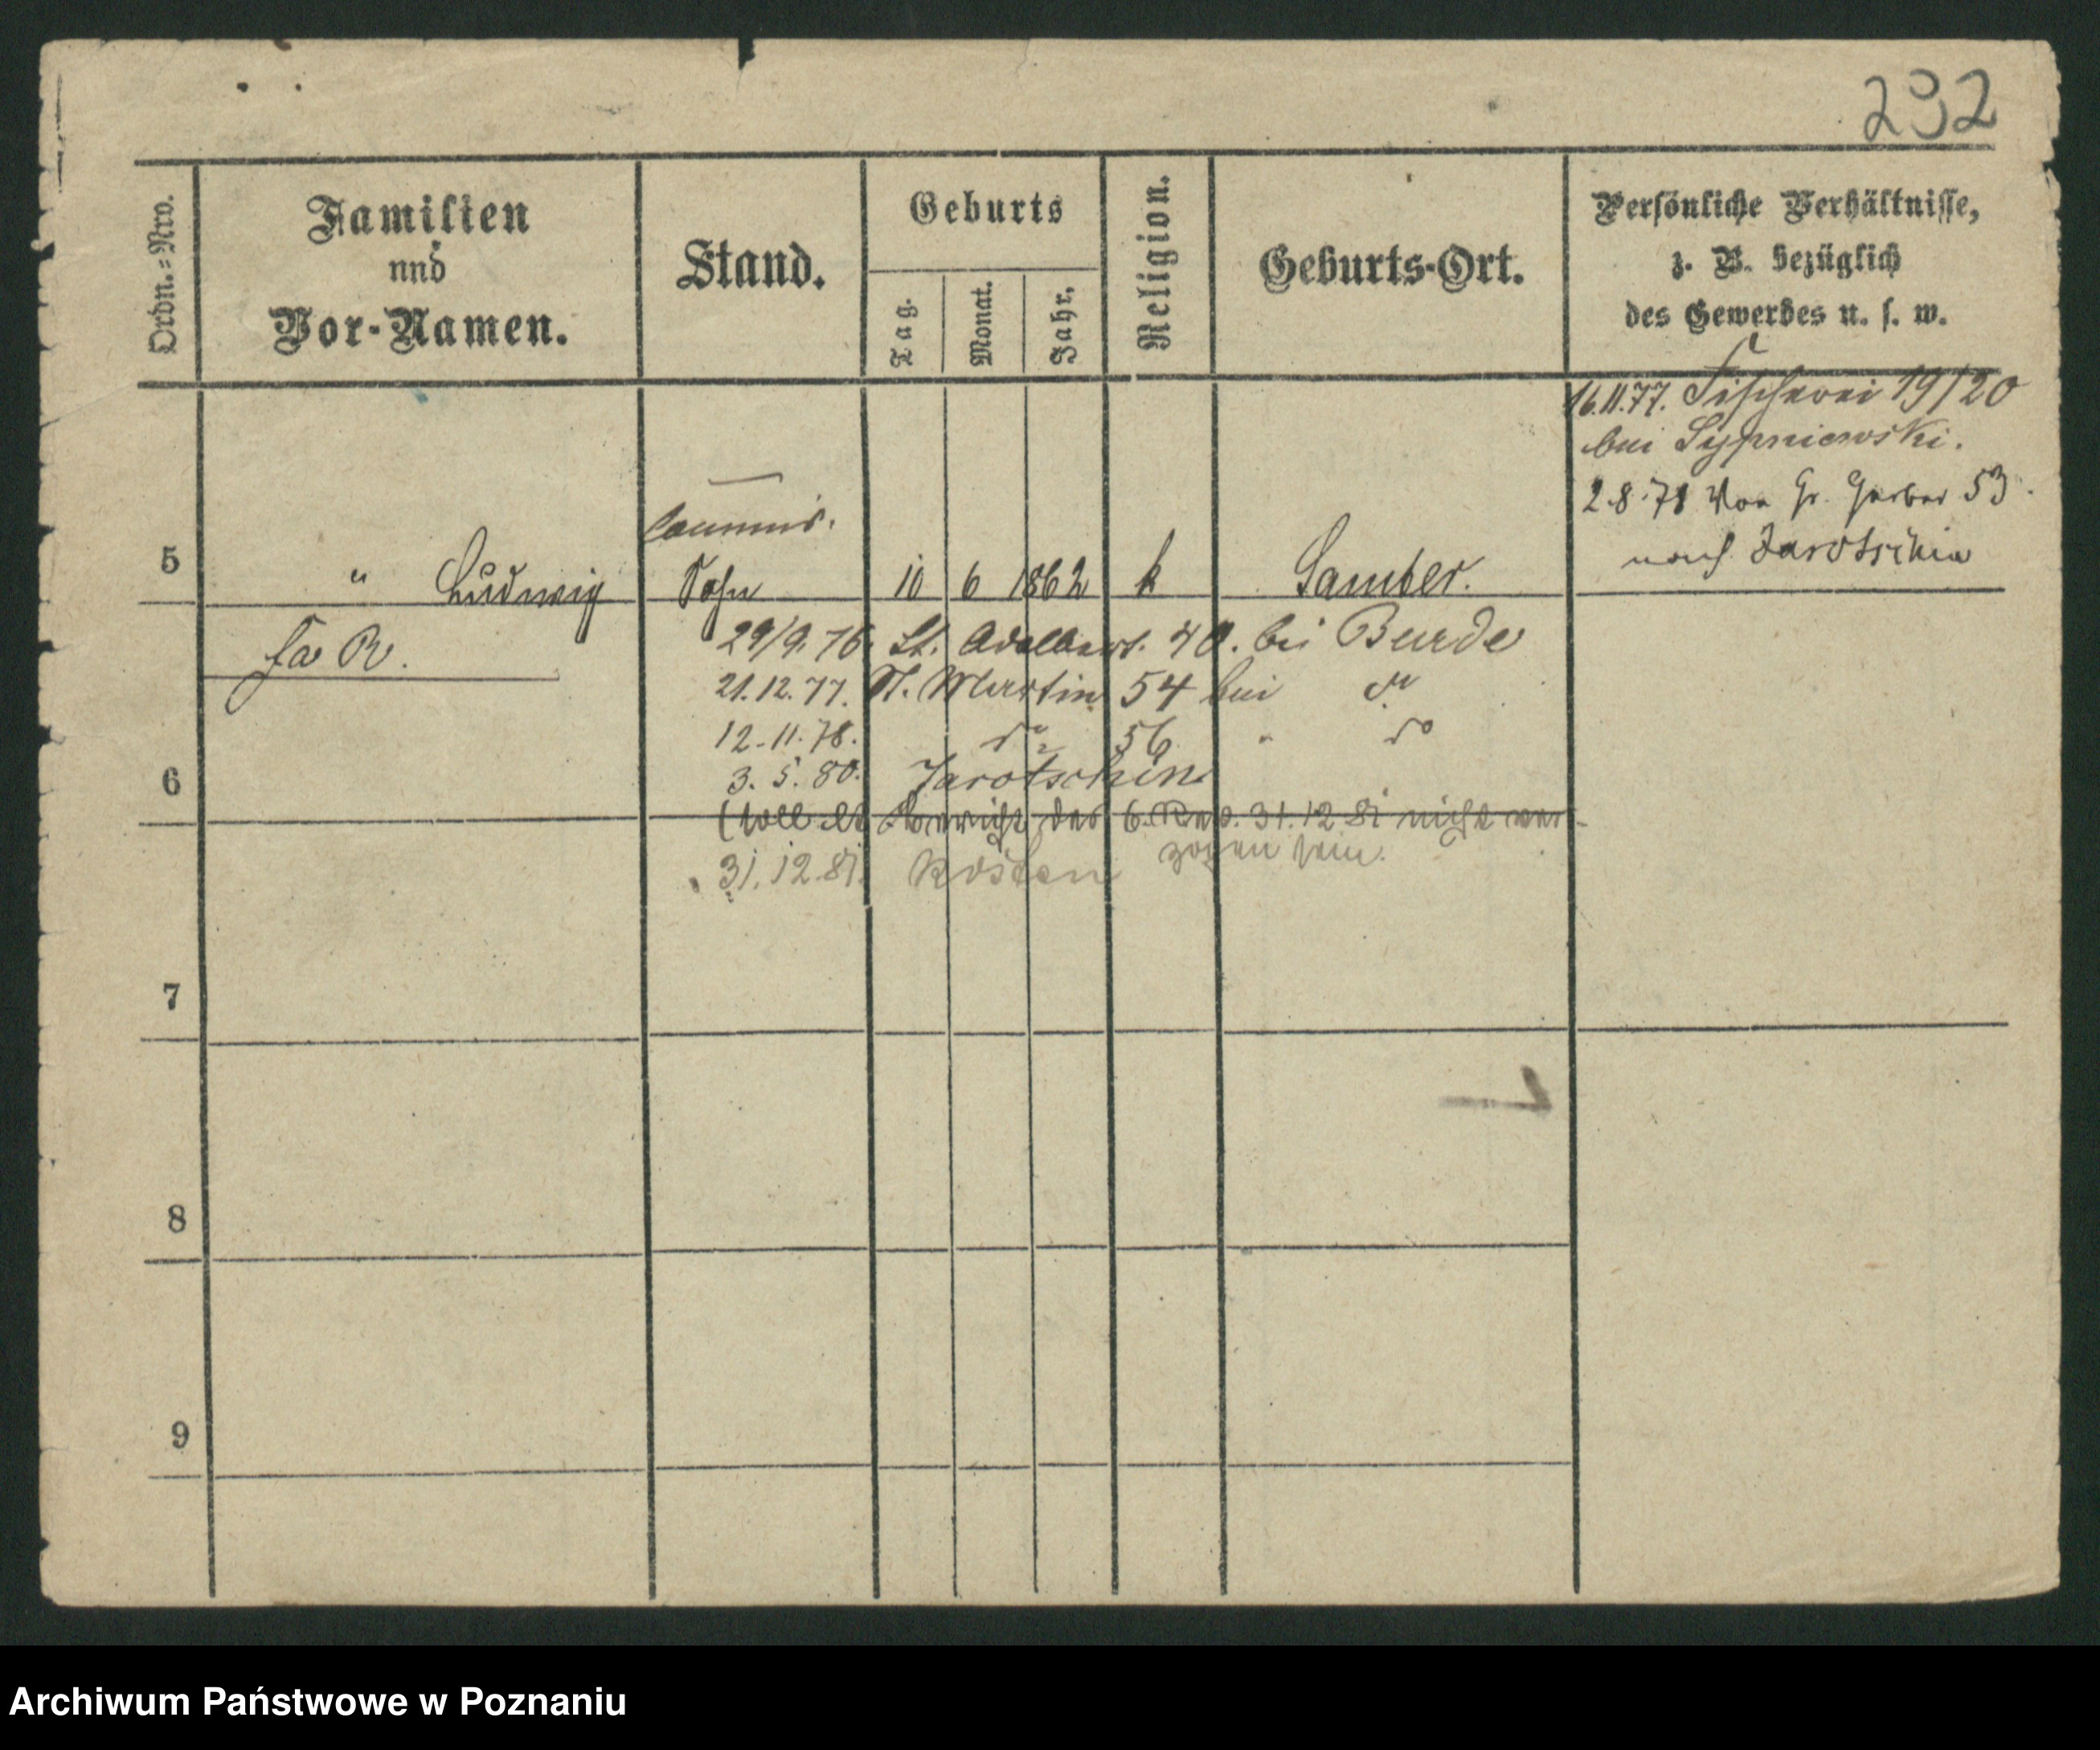 292
Ordn.-Nro.
Familien
und
Vor-Namen.
Stand.
Geburts
Tag.
Monat.
Jahr.
Religion.
Geburts-Ort.
Persönliche Verhältnisse,
z. B. bezüglich
des Gewerbes u. s. w.
16.11.77. Fischerei 19/20
bei Sypniewski.
2.8.78 Von Gr. Gerber 53.
nach Jarotschin
Commis.
5 " Ludwig Sohn 10 6 1862 k Samter.
29/9. 76. St. Adalbert. 40. bei Burde
21.12.77. St. Martin 54 bei do
12.11.78. do 56 " do
6
3. 5. 80. Jarotschin
(soll lt Bericht des 6. Rev. 31.12.81 nicht ver-
zogen sein.
31.12.81. Kosten
7
8
9
Archiwum Państwowe w Poznaniu